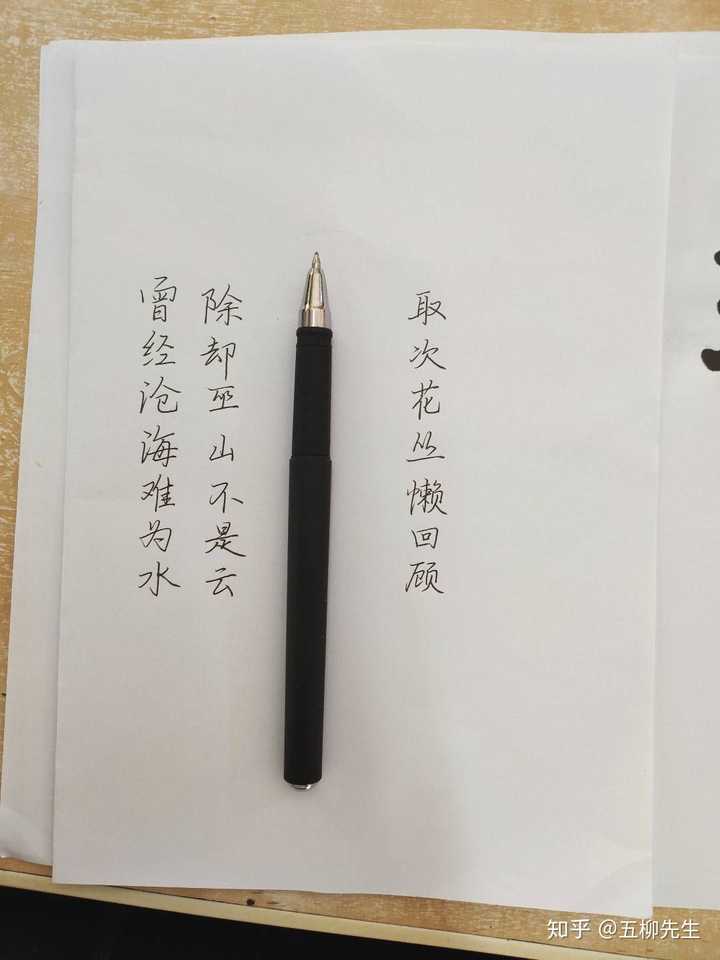 曾经沧海难为水
除却巫山不是云
取次花丛懒回顾
知乎 @五柳先生